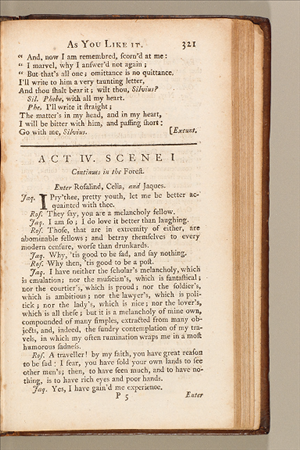 AS YOU LIKE IT. 321
“ And, now I am remembred, ſcorn'd at me:
“ I marvel, why I anſwer'd not again;
“ But that's all one; omittance is no quittance.
I'll write to him a very taunting letter,
And thou ſhalt bear it; wilt thou, Silvius?
Sil. Phebe, with all my heart.
Phe. I'll write it ſtraight;
The matter's in my head, and in my heart,
I will be bitter with him, and paſſing ſhort:
Go with me, Silvius. [Exeunt.
ACT IV. SCENE I
Continues in the Foreſt.
Enter Roſalind, Celia, and Jaques.
Jaq. I Pry'thee, pretty youth, let me be better ac-
quainted with thee.
Roſ. They ſay, you are a melancholy fellow.
Jaq. I am ſo; I do love it better than laughing.
Roſ. Thoſe, that are in extremity of either, are
abominable fellows; and betray themſelves to every
modern cenſure, worſe than drunkards.
Jaq. Why, 'tis good to be ſad, and ſay nothing.
Roſ. Why then, 'tis good to be a poſt.
Jaq. I have neither the ſcholar's melancholy, which
is emulation; nor the muſician's, which is fantaſtical;
nor the courtier's, which is proud; nor the ſoldier's,
which is ambitious; nor the lawyer's, which is poli-
tick; nor the lady's, which is nice; nor the lover's,
which is all theſe; but it is a melancholy of mine own,
compounded of many ſimples, extracted from many ob-
jects, and, indeed, the ſundry contemplation of my tra-
vels, in which my often rumination wraps me in a moſt
humorous ſadneſs.
Roſ. A traveller! by my faith, you have great reaſon
to be ſad: I fear, you have ſold your own lands to ſee
other men's; then, to have ſeen much, and to have no-
thing, is to have rich eyes and poor hands.
Jaq. Yes, I have gain'd me experience.
P 5 Enter